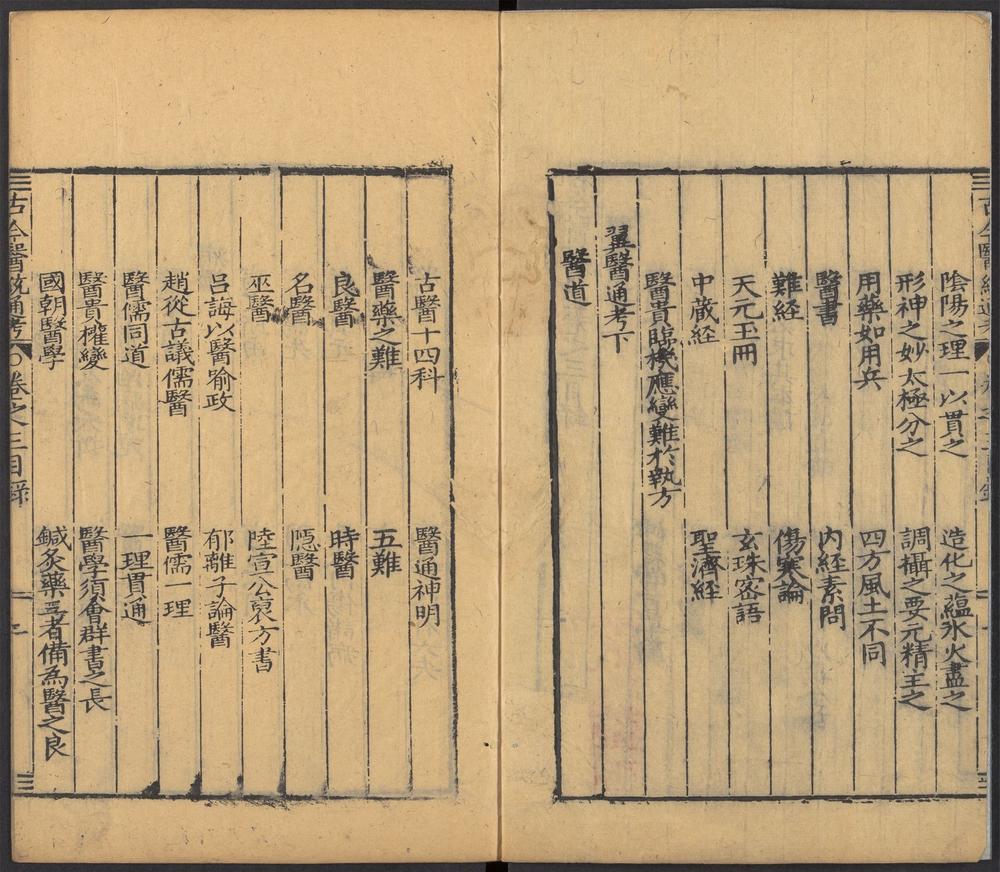 陰陽之理一以貫之　造化之蘊水火盡之
形神之妙太極分之　調攝之要元精主之
用藥如用兵　四方風土不同
醫書　內經素問
難經　傷寒論
天元玉冊　玄珠密語
中藏経　聖濟經
醫貴臨機應變難於執方
翼醫通考下
醫道
古醫十四科　醫通神明
醫藥之難　五難
良醫　時醫
名醫　隱醫
巫醫　陸宣公裒方書
呂誨以醫喻政　郁離子論醫
趙從古議儒醫　醫儒一理
醫儒同道　一理貫通
醫貴權變　醫學須會群書之長
國朝醫學　鍼灸藥三者備為醫之良
古今醫統通考　卷之三目錄